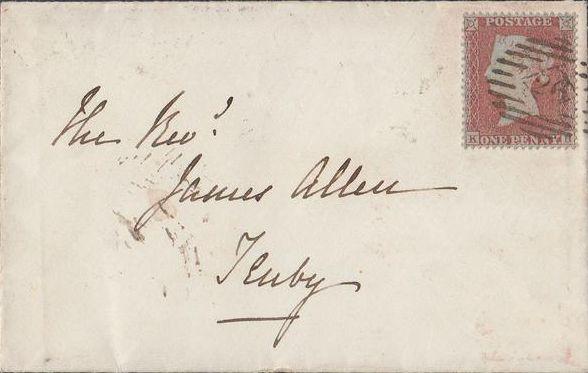 POSTAGE
ONE PENNY
K
The Revd.
James Allen
Tenby